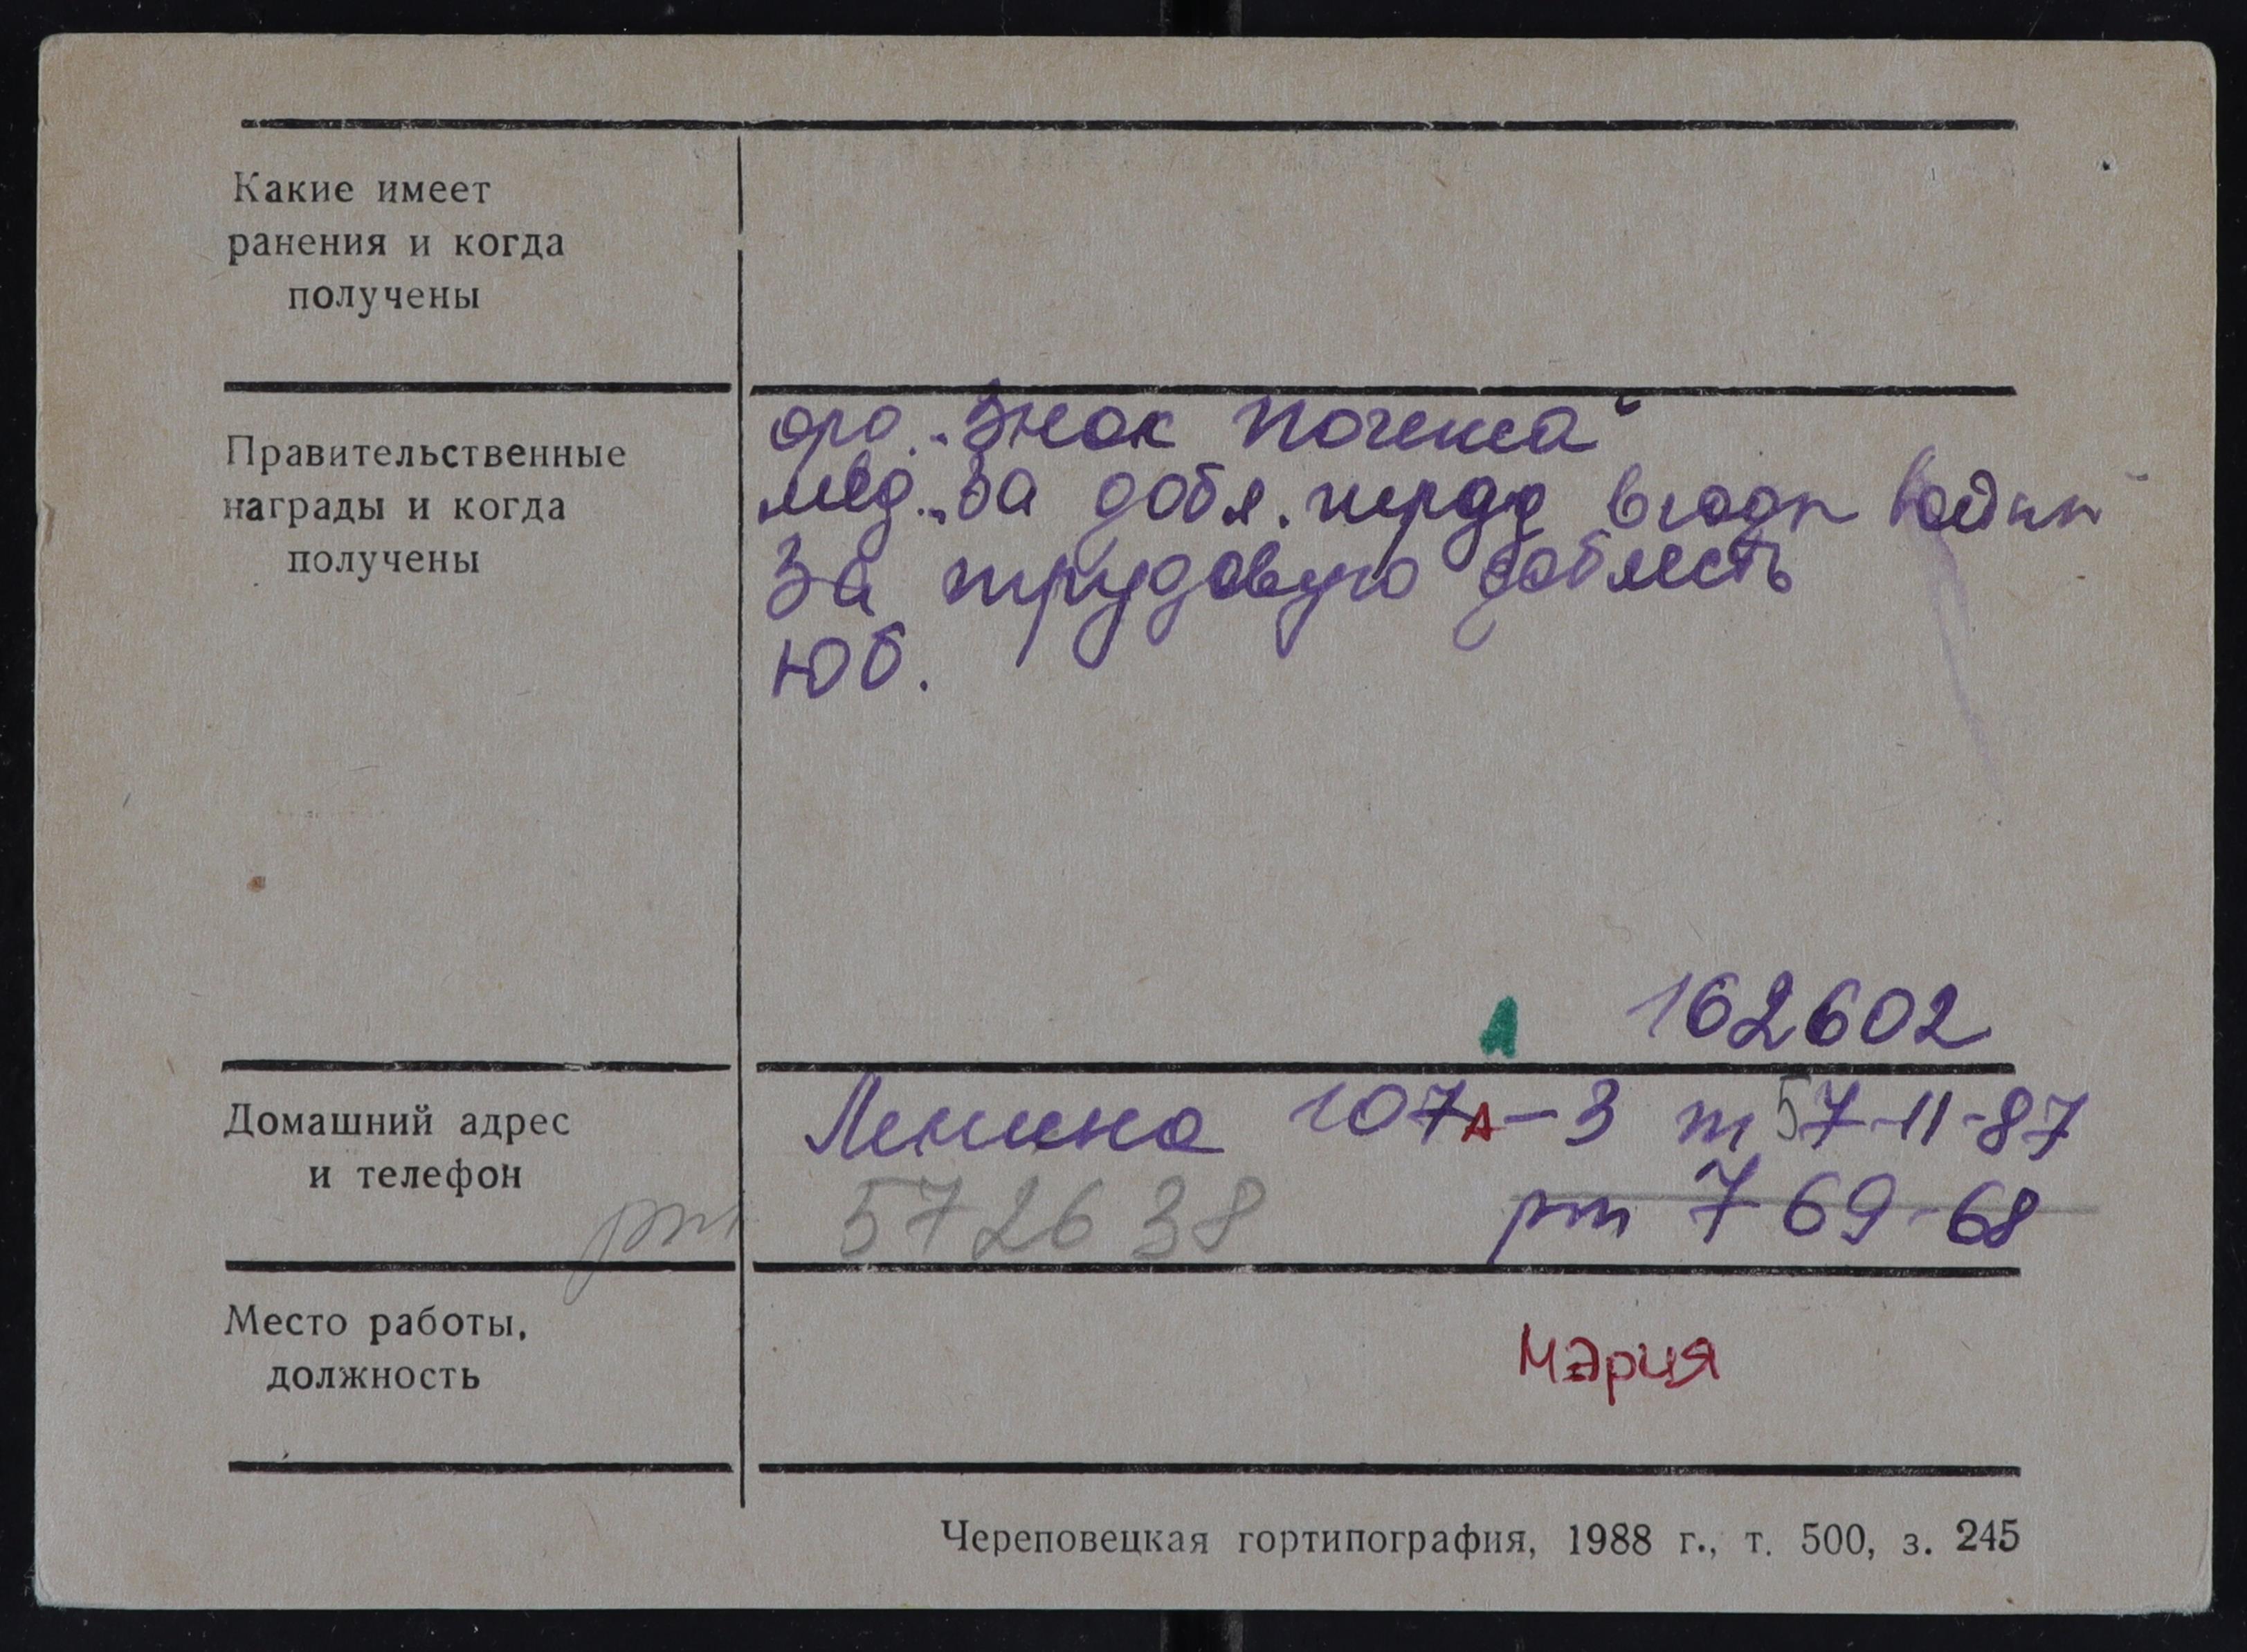 Какие имеет
ранения и когда
получены
Правительственные
награды и когда
получены
орд. „Знак Почета“
мед. „За добл. труд в годы войны“
За трудовую доблесть
Юб.
А 162602
Домашний адрес
и телефон
Ленина 107А-3 т 57-11-87
рт 572638 рт 7 69-68
Место работы,
должность
Мэрия
Череповецкая гортипография, 1988 г., т. 500, з. 245